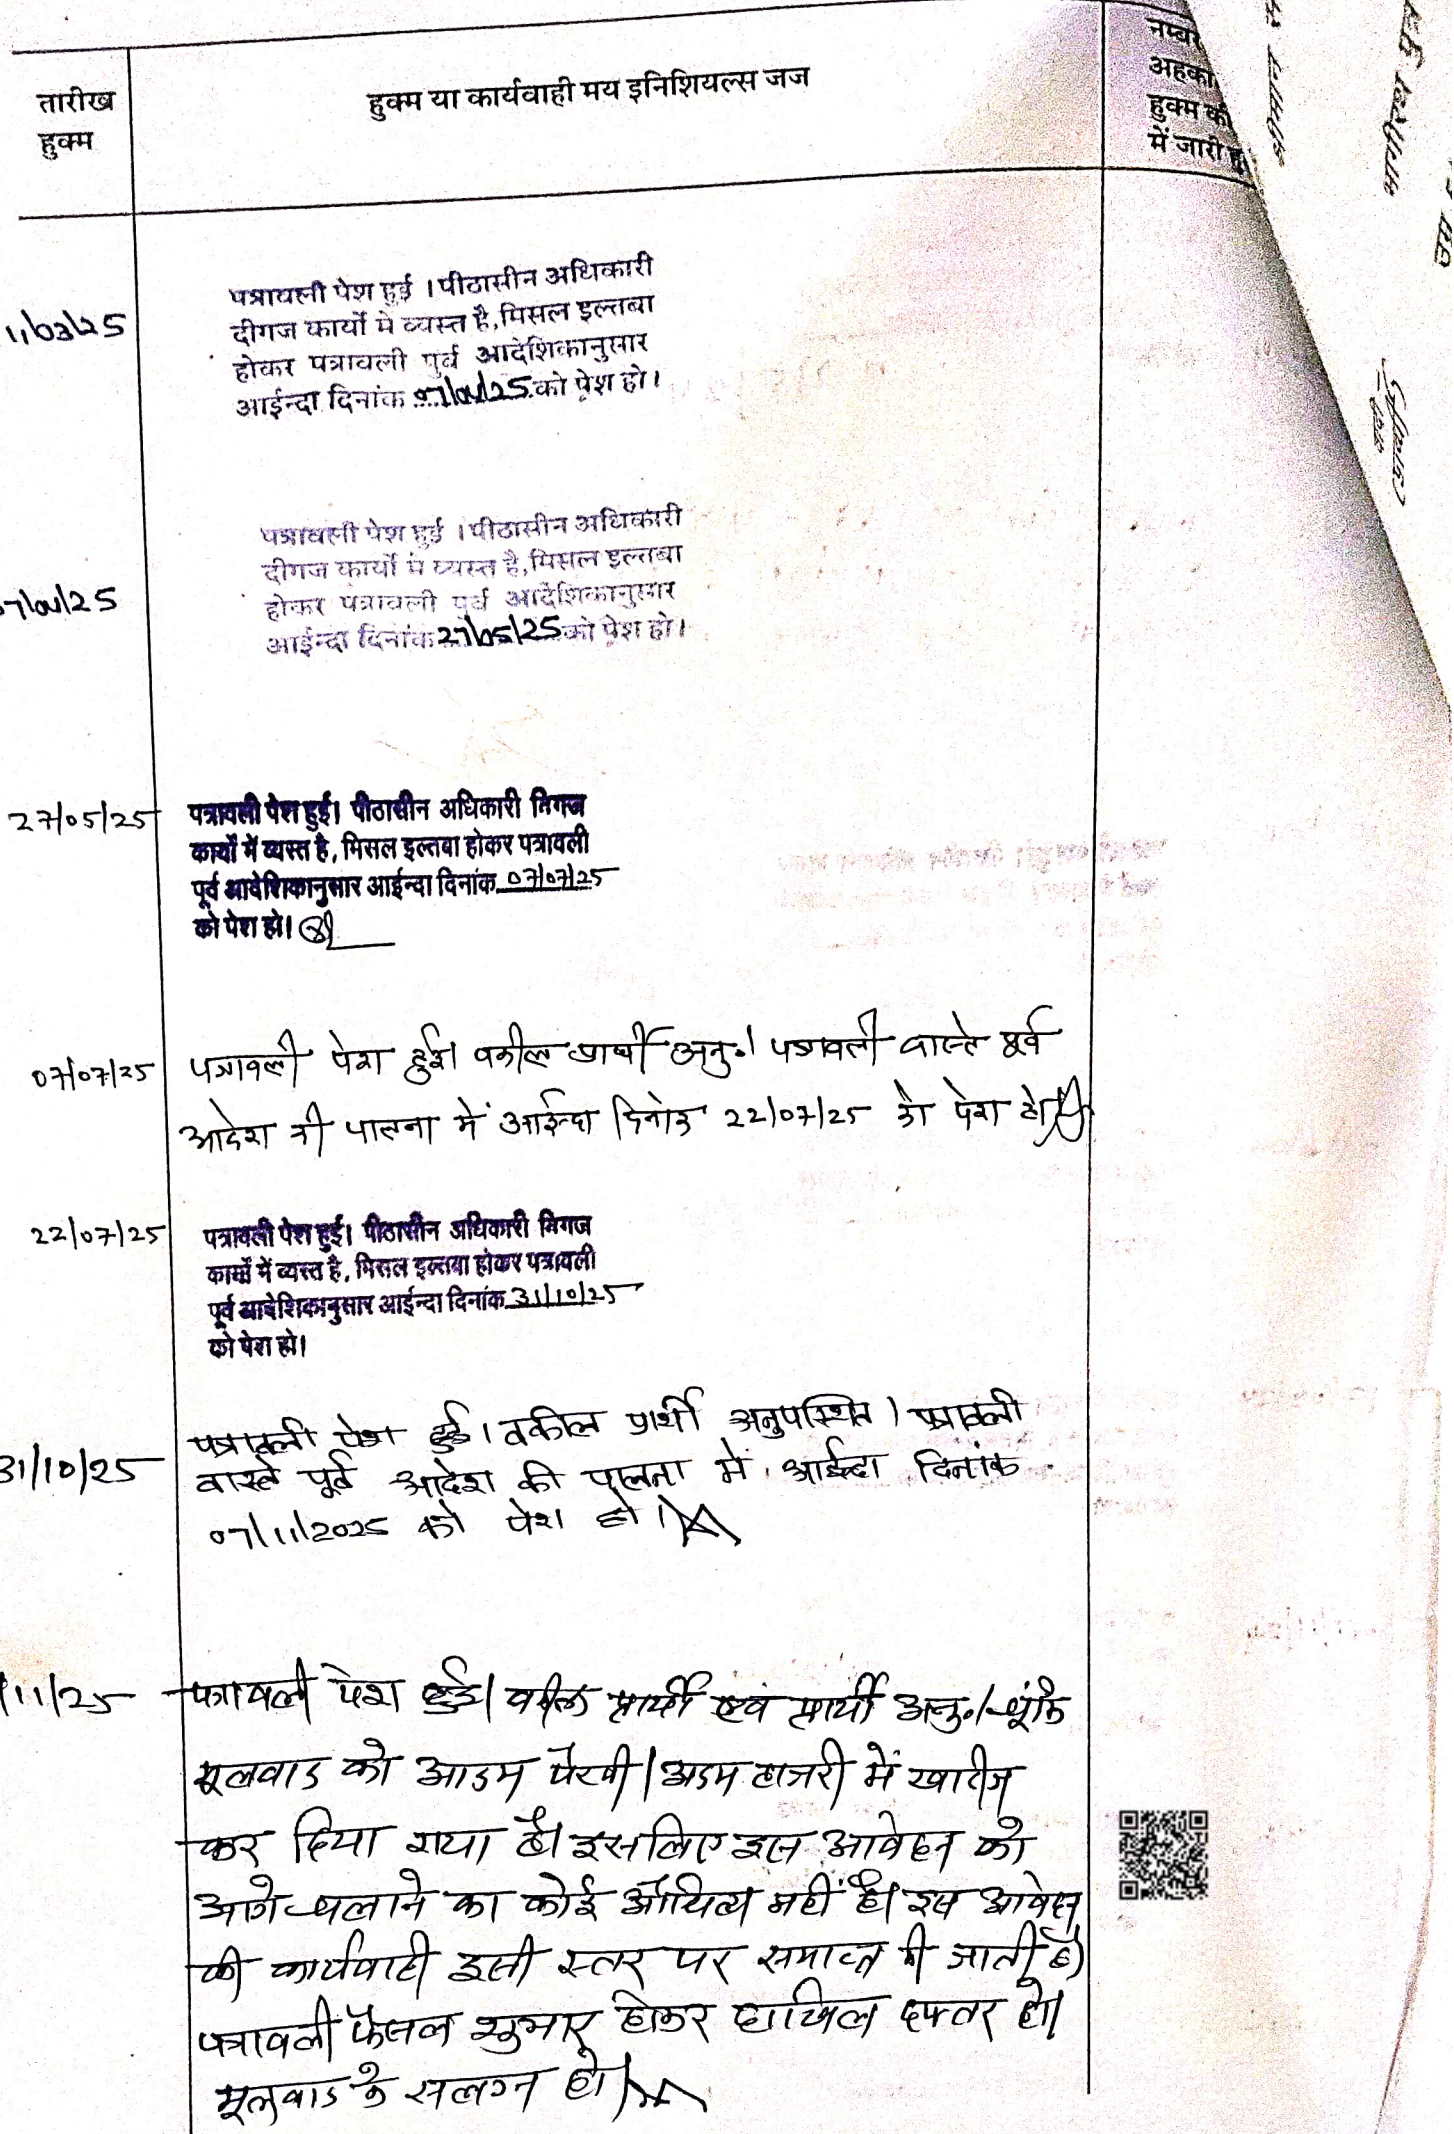 तारीख
हुक्म
हुक्म या कार्यवाही मय इनिशियल्स जज
नम्बर
अहका
हुक्म की
में जारी हु
11/03/25
पत्रावली पेश हुई । पीठासीन अधिकारी
दीगज कार्यो मे व्यस्त है, मिसल इल्तबा
होकर पत्रावली पुर्व आदेशिकानुसार
आईन्दा दिनांक 07/04/25 को पेश हो।
07/04/25
पत्रावली पेश हुई । पीठासीन अधिकारी
दीगज कार्यो मे व्यस्त है, मिसल इल्तबा
होकर पत्रावली पुर्व आदेशिकानुसार
आईन्दा दिनांक 27/05/25 को पेश हो।
27/05/25
पत्रावली पेश हुई। पीठासीन अधिकारी दिगज
कार्यों में व्यस्त है, मिसल इल्तबा होकर पत्रावली
पूर्व आदेशिकानुसार आईन्दा दिनांक 07/07/25
को पेश हो।
07/07/25
पत्रावली पेश हुई। वकील प्रार्थी अनु०। पत्रावली वास्ते पूर्व
आदेश की पालना में आईन्दा दिनांक 22/07/25 को पेश हो।
22/07/25
पत्रावली पेश हुई। पीठासीन अधिकारी दिगज
कार्यों में व्यस्त है, मिसल इल्तबा होकर पत्रावली
पूर्व आदेशिकानुसार आईन्दा दिनांक 31/10/25
को पेश हो।
31/10/25
पत्रावली पेश हुई। वकील प्रार्थी अनुपस्थित। पत्रावली
वास्ते पूर्व आदेश की पालना में आईन्दा दिनांक
07/11/2025 को पेश हो।
/11/25
पत्रावली पेश हुई। वकील प्रार्थी एवं प्रार्थी अनु०। चूंकि
मूलवाद को आदम पैरवी/अदम हाजरी में खारीज
कर दिया गया है। इसलिए इस आवेदन को
आगे चलाने का कोई औचित्य नहीं है। इस आवेदन
की कार्यवाही इसी स्तर पर समाप्त की जाती है।
पत्रावली फैसल शुमार होकर दाखिल दफ्तर हो।
मूलवाद के सलग्न हो।